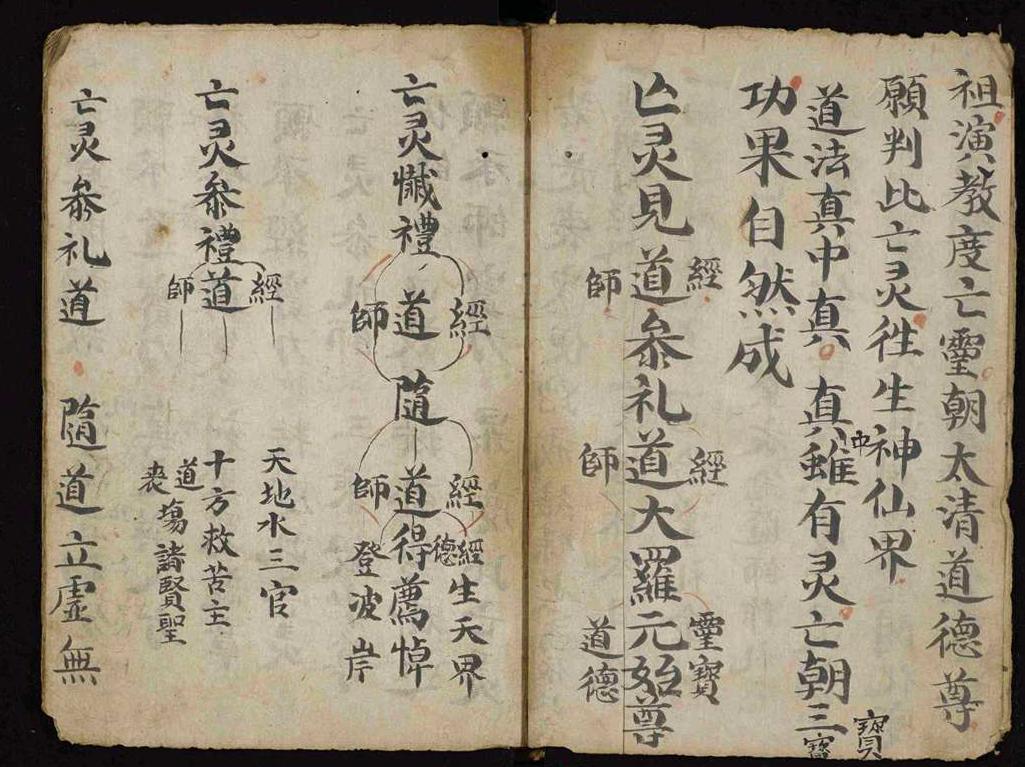 祖演教度亡靈朝太清道德尊
願判比亡灵徃生神仙界
道法真中真 真雖有灵亡朝三寶
中
寶
功果自然成
經 經 靈寶
亡灵見道叅礼道大羅元始尊
師 師 道德
經 經 經生天界
亡灵懴禮道 隨道得薦悼
德
師 師登波岸
經 天地水三官
亡灵叅禮道 十方救苦主
師 道塲諸賢聖
亡灵叅礼道 隨道立虛無